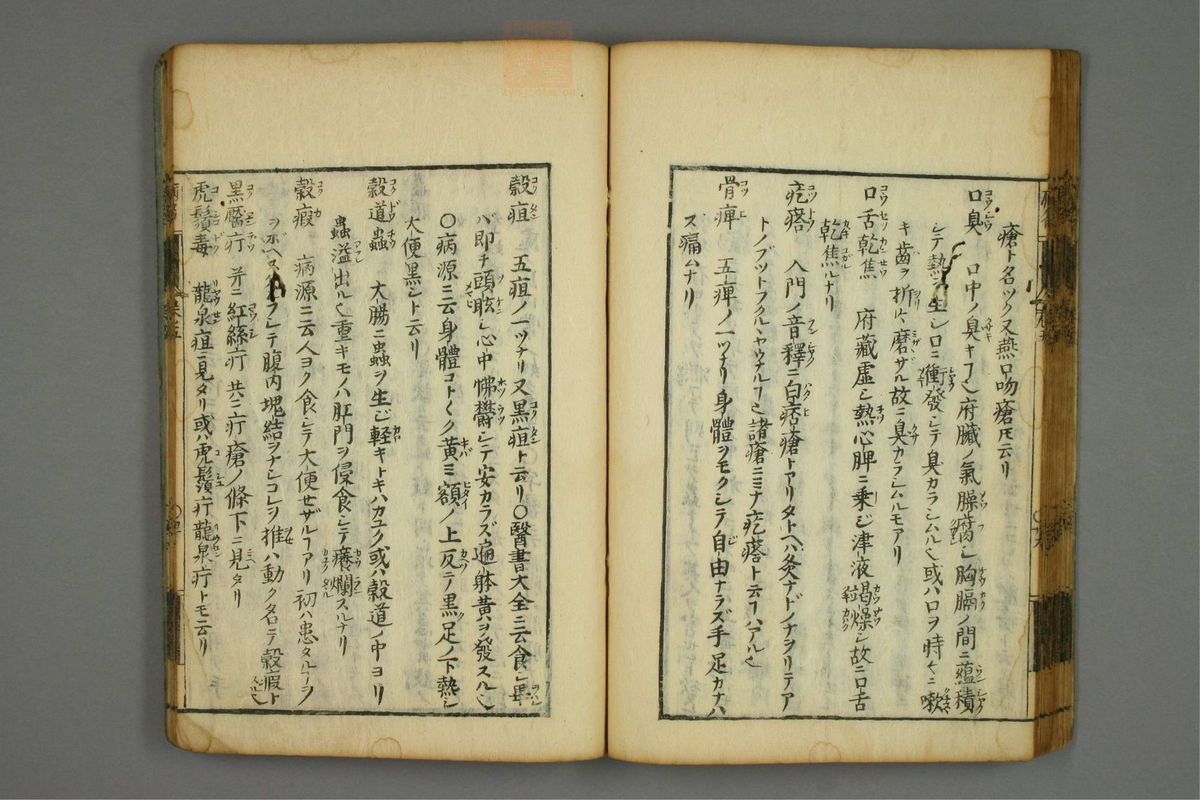 瘡ト名ツク又燕口吻瘡𪜈云リ
口臭　口中ノ臭キヿ也府臟ノ氣臊腐シ胸膈ノ間ニ蘊積
シテ熱ヲ生シ口ニ衝發シテ臭カラシムル也或ハ口ヲ時々ニ嗽
キ齒ヲ折々磨サル故ニ臭カラシムルモアリ
口舌乾焦　府藏虛シ熱心脾ニ乗ジ津液竭燥シ故ニ口舌
乾焦ルナリ
疙瘩　入門ノ音釋ニ白痞瘡トアリタトヘバ灸ナドノナヲリテア
トノブットフクルヽヤウナルヿ也諸瘡ニミナ疙瘩ト云ヿハアル也
骨痺　五痺ノ一ツナリ身體ヲモクシテ自由ナラズ手足カナハ
ズ痛ムナリ
穀疸　五疸ノ一ツナリ又黒疸ト云リ〇醫書大全ニ云食シ畢
バ即チ頭眩シ心中怫鬱シテ安カラズ遍躰黄ヲ發スル也
〇病源ニ云身體コト〱ク黄ミ額ノ上反テ黒足ノ下熱シ
大便黒シト云リ
穀道蟲　大腸ニ蟲ヲ生ジ軽キトキハカユク或ハ穀道ノ中ヨリ
蟲溢出ル也重キモノハ肛門ヲ侵食シテ癢爛スルナリ
穀瘕　病源ニ云人ヨク食シテ大便セザルヿアリ初ハ患タルヿヲ
ヲボヘズ シテ腹内塊結ヲナシコレヲ推ハ動ク名テ穀瘕ト
黒靨疔　并ニ紅絲疔　共ニ疔瘡ノ條下ニ見タリ
虎鬚毒　龍泉疽ニ見タリ或ハ虎鬚疔龍泉疔トモ云リ